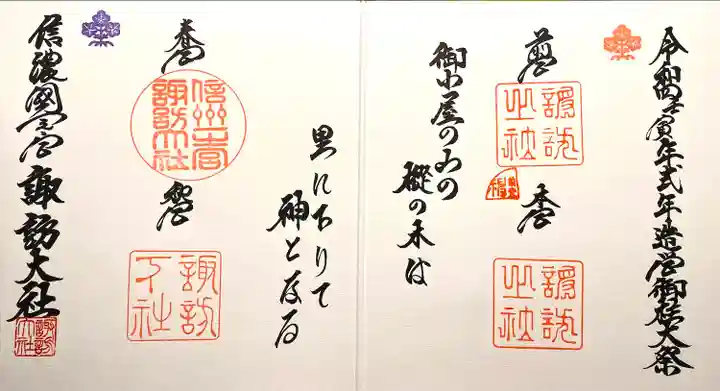 令和壬寅年式年造営御柱大祭
前宮
諏訪之社
本宮
諏訪之社
御小屋の山の
樅の木は
里に下りて
神となる
春宮
信州一宮
諏訪大社
秋宮
諏訪下社
信濃國一之宮 諏訪大社
諏訪大社